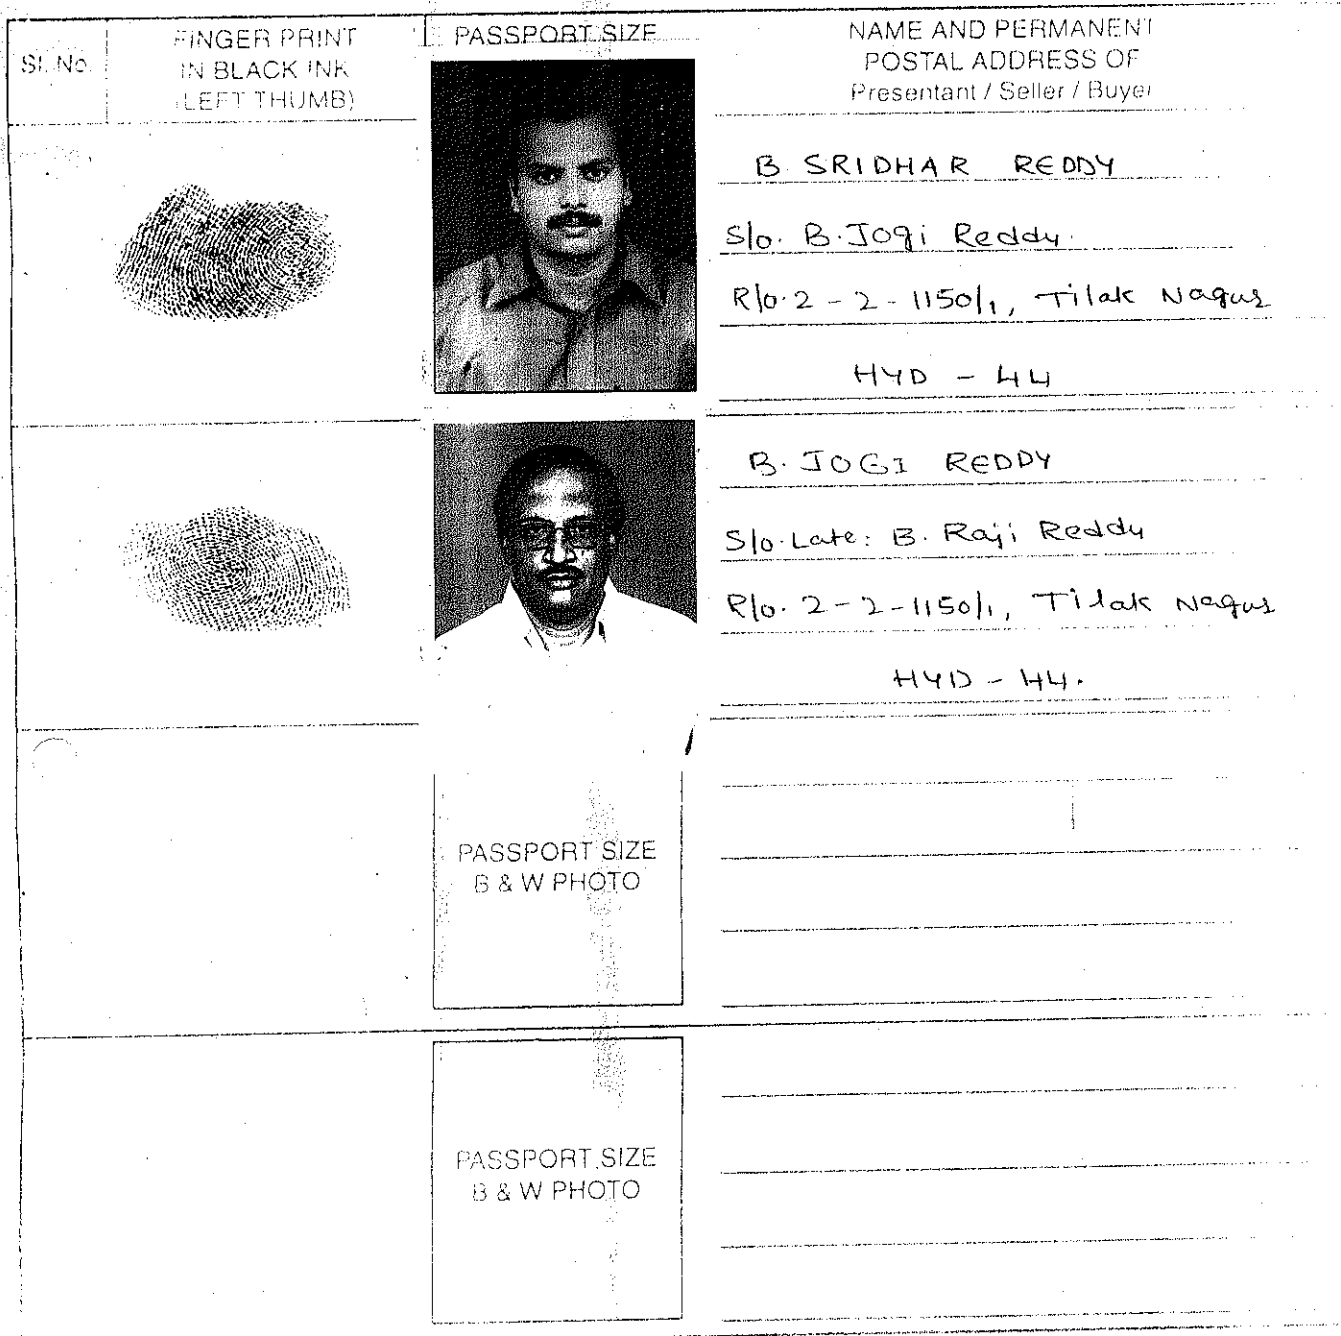 Sl. No.
FINGER PRINT
IN BLACK INK
(LEFT THUMB)
PASSPORT SIZE
NAME AND PERMANENT
POSTAL ADDRESS OF
Presentant / Seller / Buyer
B SRIDHAR REDDY
S/o. B. Jogi Reddy.
R/o. 2 - 2 - 1150/1, Tilak Nagar
HYD - 44
B. JOGI REDDY
S/o. Late: B. Raji Reddy
R/o. 2 - 2 - 1150/1, Tilak Nagar
HYD - 44.
PASSPORT SIZE
B & W PHOTO
PASSPORT SIZE
B & W PHOTO